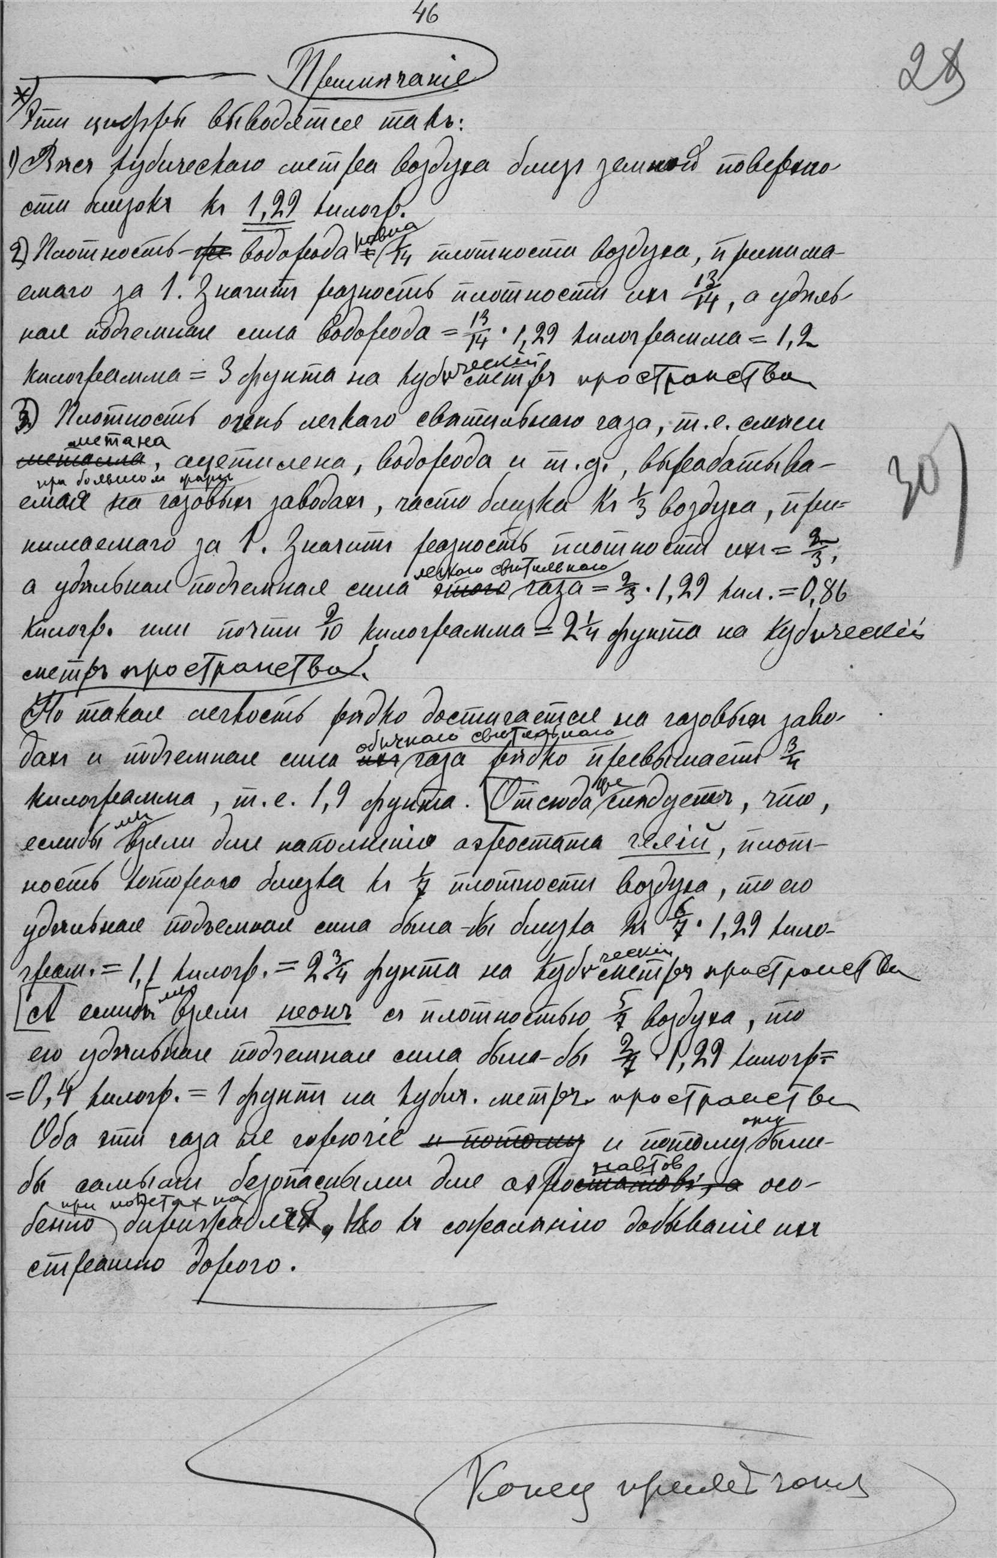 46
28
Примѣчаніе
*) Эти цифры выводятся такъ:
1) Вѣсъ кубическаго метра воздуха близъ земной поверхно-
сти близокъ къ 1,29 килогр.
2) Плотность водорода равна 1/14 плотности воздуха, принима-
емаго за 1. Значитъ разность плотности ихъ 13/14, а удѣль-
ная подъемная сила водорода = 13/14 · 1,29 килограмма = 1,2
килограмма = 3 фунта на кубическій метръ пространства
3) Плотность очень легкаго свѣтильнаго газа, т.е. смѣси
метана
металла, ацетилена, водорода и т.д., вырабатыва-
при большом жарѣ
емая на газовыхъ заводахъ, часто близка къ 1/3 воздуха, при-
30
нимаемаго за 1. Значитъ разность плотности ихъ = 2/3,
легкаго свѣтильнаго
а удѣльная подъемная сила этого газа = 2/3 · 1,29 кил. = 0,86
килогр. или почти 9/10 килограмма = 2 1/4 фунта на кубическій
метръ пространства.
Но такая легкость рѣдко достигается на газовыхъ заво-
обычнаго свѣтильнаго
дахъ и подъемная сила ихъ газа рѣдко превышаетъ 3/4
килограмма, т.е. 1,9 фунта. Отсюда же слѣдуетъ, что,
еслибы мы взяли для наполненія аэростата гелій, плот-
ность котораго близка къ 1/7 плотности воздуха, то его
удѣльная подъемная сила была-бы близка къ 6/7 · 1,29 кило-
грам. = 1,1 килогр. = 2 3/4 фунта на кубическій метръ пространства
А еслибы мы взяли неонъ съ плотностью 5/7 воздуха, то
его удѣльная подъемная сила была-бы 2/7 · 1,29 килогр =
= 0,4 килогр. = 1 фунтъ на кубич. метръ пространства
Оба эти газа не горючіе и потому и потому они были-
навтов
бы самыми безопасными для аэростатовъ, а осо-
при полетах на
бенно дирижаблей, но къ сожалѣнію добываніе ихъ
страшно дорого.
Конец примѣчания